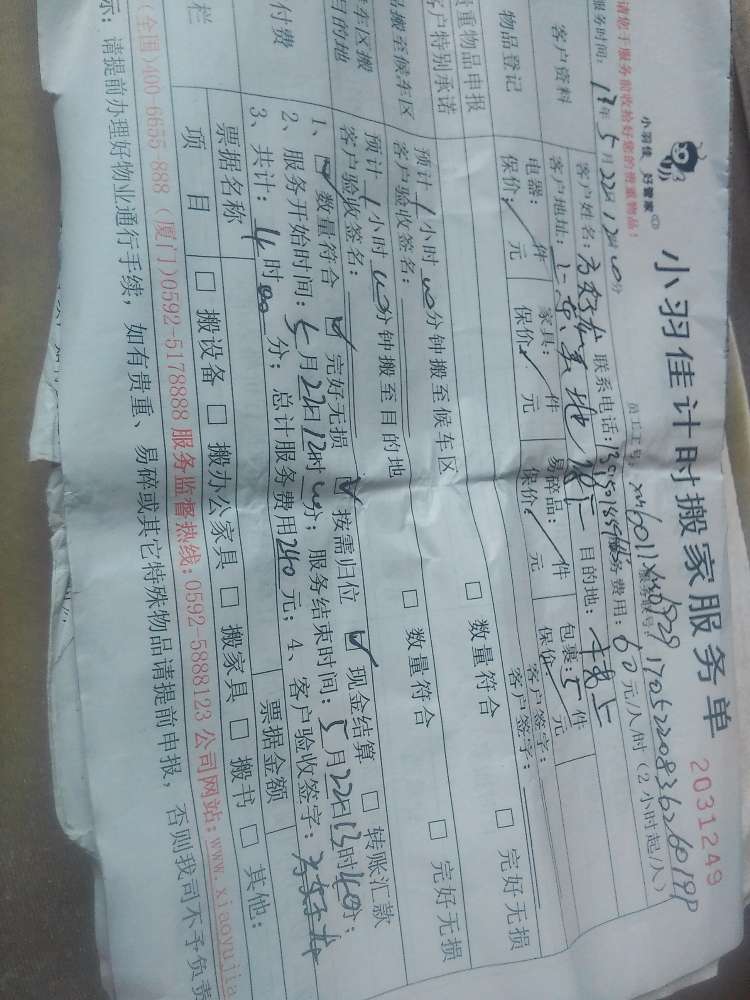 小羽佳计时搬家服务单
2031249
小羽佳 好管家
请您于服务前收拾好您的贵重物品!
员工工号:
服务时间: 17年5月22日12时00分
客户资料
客户姓名: 联系电话: 服务费用: 60元/人/时(2小时起/人)
客户地址: 目的地:
物品登记
电器: 件 家具: 件 易碎品: 件 包裹: 5件
保价: 元 保价: 元 保价: 元 保价: 元
贵重物品申报
客户签字:
客户特别承诺
客户签字:
搬至候车区
预计 1小时00分钟搬至候车区 □ 数量符合 □ 完好无损
客户验收签名:
车区搬
目的地
预计 1小时00分钟搬至目的地 □ 数量符合 □ 完好无损
客户验收签名:
付费
1、☑ 数量符合 ☑ 完好无损 ☑ 按需归位 ☑ 现金结算 □ 转账汇款
2、服务开始时间: 5月22日12时00分; 服务结束时间: 5月22日13时40分;
3、共计: 4时00分; 总计服务费用240元; 4、客户验收签字:
栏
票据名称 票据金额
项 目 □ 搬设备 □ 搬办公家具 □ 搬家具 □ 搬书 □ 其他:
(全国)400-6655-888 (厦门)0592-5178888 服务监督热线: 0592-5888123 公司网站: www.xiaoyujia
示: 请提前办理好物业通行手续, 如有贵重、易碎或其它特殊物品请提前申报, 否则我司不予负责